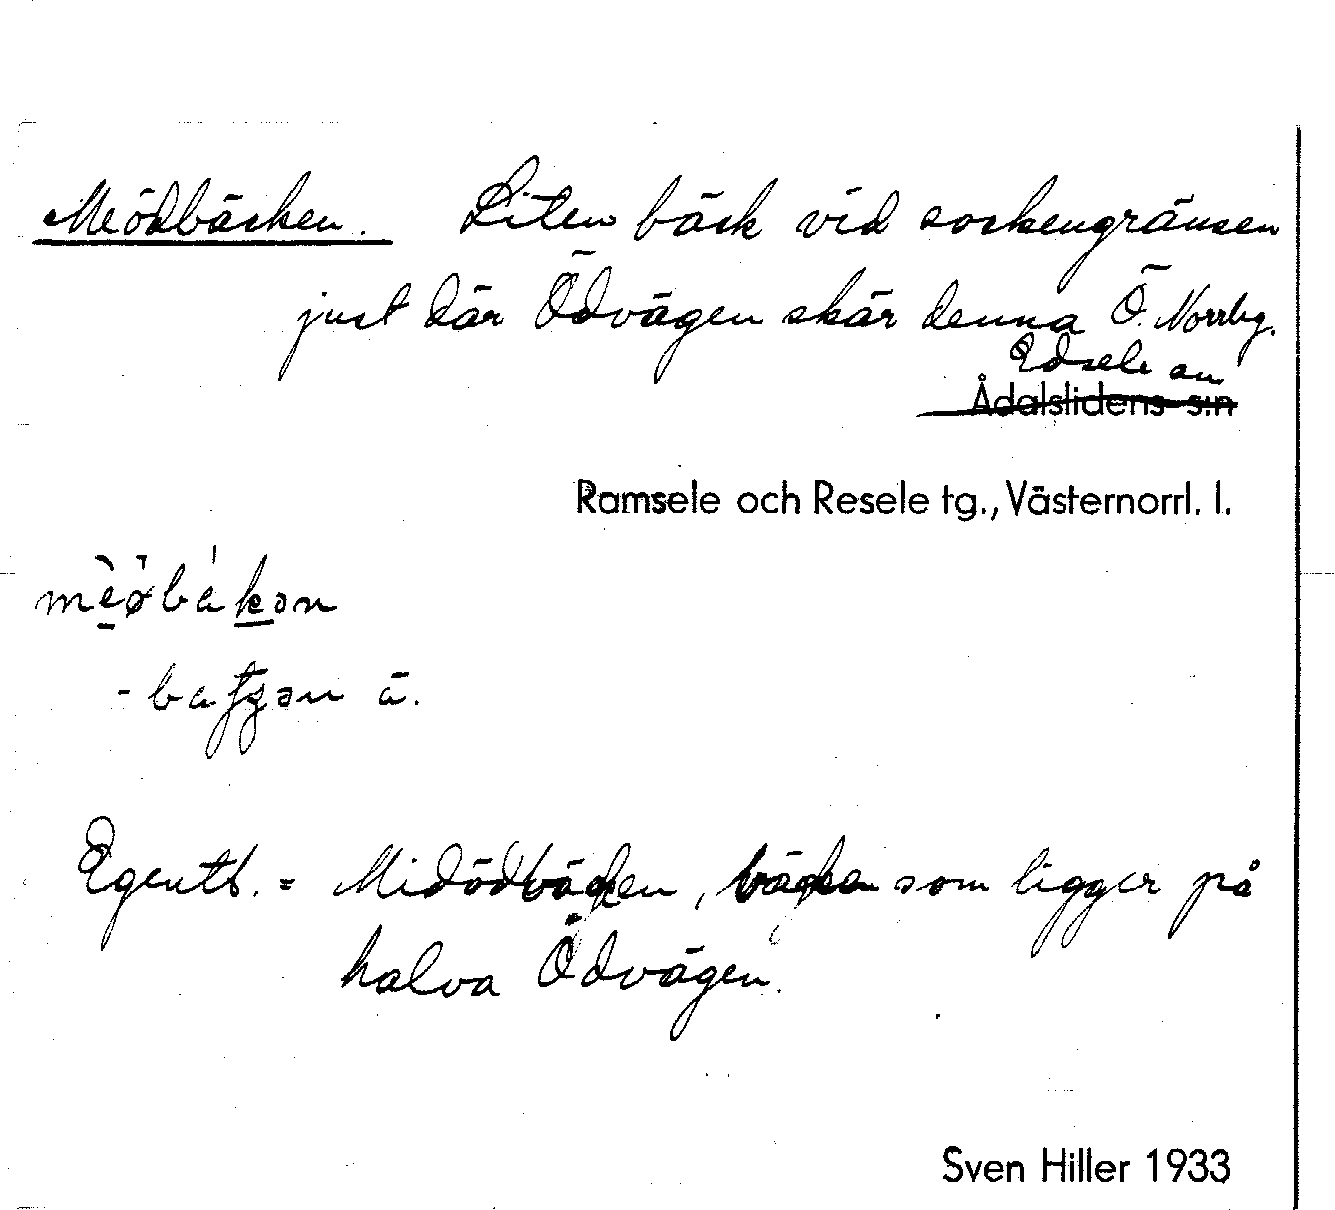 Meödbäcken. Liten bäck vid sockengränsen
just där Ödvägen skär denna Ö. Norrbg.
Edsele sn
Ådalslidens s:n
Ramsele och Resele tg., Västernorrl. l.
Egentl. = Midödbäcken, bäcken som ligger på
halva Ödvägen.
Sven Hiller 1933